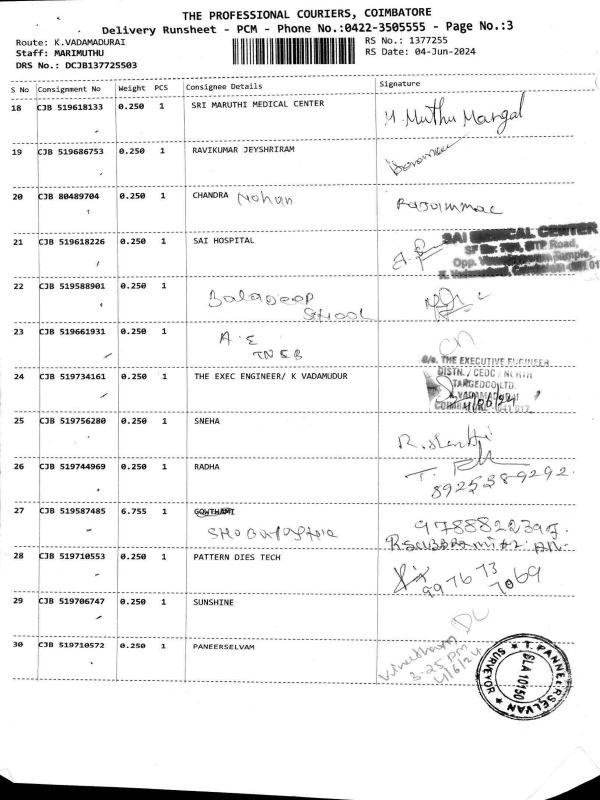 THE PROFESSIONAL COURIERS, COIMBATORE
Delivery Runsheet - PCM - Phone No.:0422-3505555 - Page No.:3
Route: K.VADAMADURAI RS No.: 1377255
Staff: MARIMUTHU RS Date: 04-Jun-2024
DRS No.: DCJB137725503
S No Consignment No Weight PCS Consignee Details Signature
18 CJB 519618133 0.250 1 SRI MARUTHI MEDICAL CENTER
M. Muthu Mangal
19 CJB 519686753 0.250 1 RAVIKUMAR JEYSHRIRAM
20 CJB 80489704 0.250 1 CHANDRA Mohan
21 CJB 519618226 0.250 1 SAI HOSPITAL
SAI MEDICAL CENTER
Road,
Opp.
22 CJB 519588901 0.250 1
School
23 CJB 519661931 0.250 1 A.E
TNEB
O/o. THE EXECUTIVE ENGINEER
DISTN. / CEDC / NORTH
TANGEDCO LTD.
24 CJB 519734161 0.250 1 THE EXEC ENGINEER/ K VADAMUDUR
4/06/24
25 CJB 519756280 0.250 1 SNEHA
26 CJB 519744969 0.250 1 RADHA
8925389292.
27 CJB 519587485 6.755 1 GOWTHAMI
28 CJB 519710553 0.250 1 PATTERN DIES TECH
99767 73
7069
29 CJB 519706747 0.250 1 SUNSHINE
30 CJB 519710572 0.250 1 PANEERSELVAM
3.25 pm
4/6/24
T. PANNEERSELVAN
SLA 10150
SURVEYOR